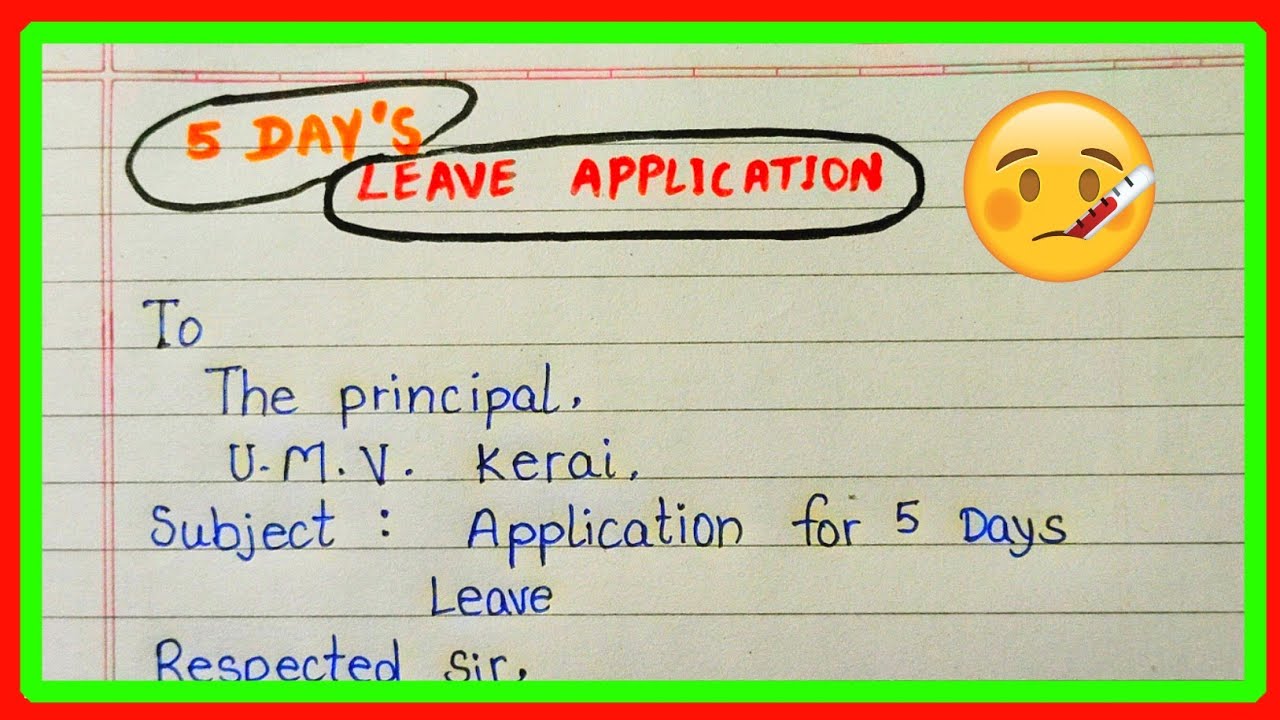 5 DAY'S
LEAVE APPLICATION
To
The principal,
U.M.V. Kerai,
Subject : Application for 5 Days
Leave
Respected Sir,